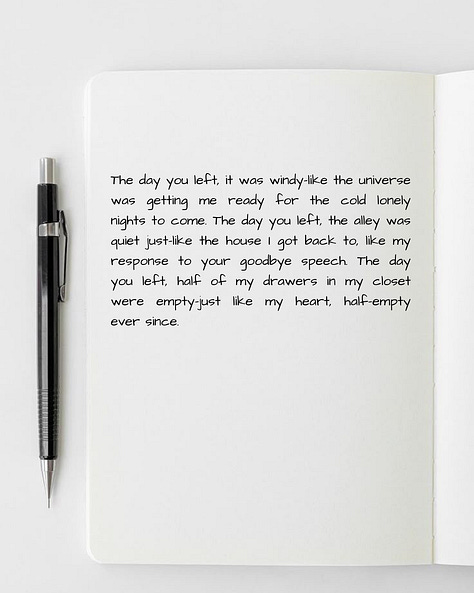 The day you left, it was windy-like the universe
was getting me ready for the cold lonely
nights to come. The day you left, the alley was
quiet just-like the house I got back to, like my
response to your goodbye speech. The day
you left, half of my drawers in my closet
were empty-just like my heart, half-empty
ever since.